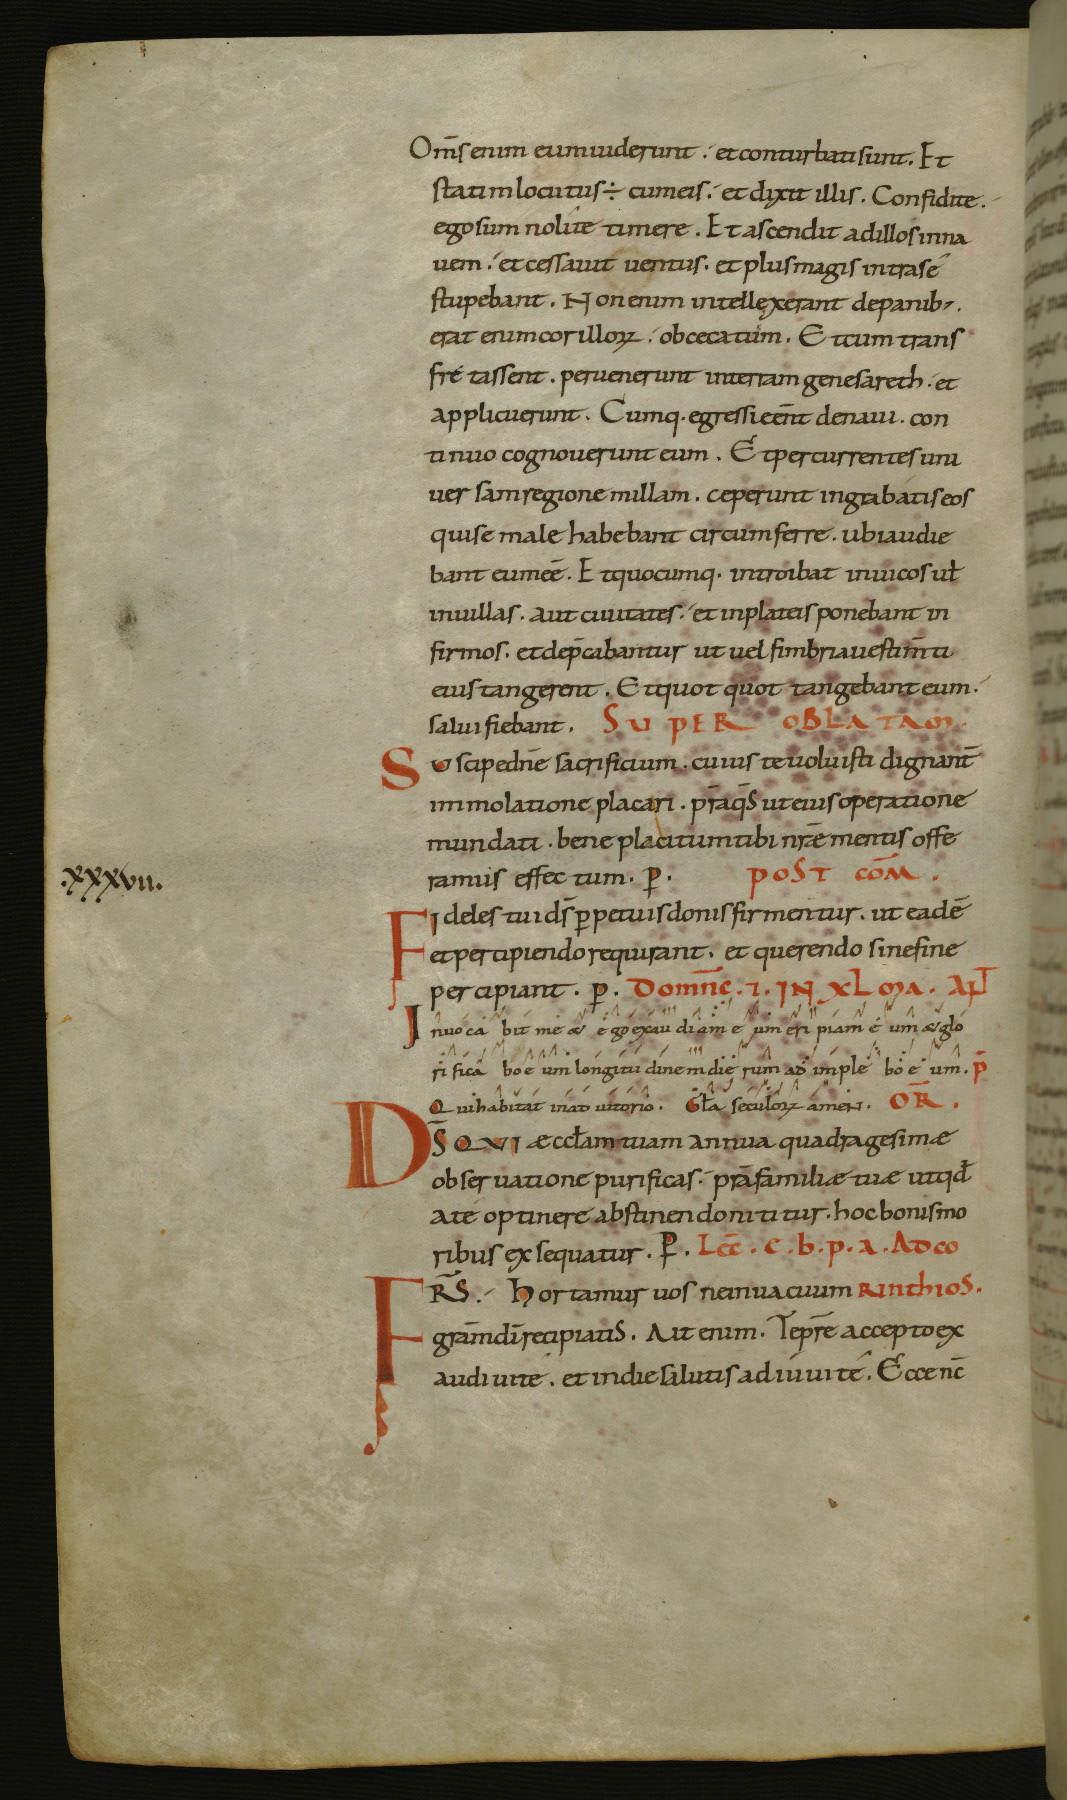 Om̅s enim eum uiderunt. et conturbati sunt. Et
statim locutus ÷ cum eis. et dixit illis. Confidite.
ego sum nolite timere. Et ascendit ad illos in na
uem. et cessauit uentus. et plus magis intra se
stupebant. Non enim intellexerant de panib;.
erat enim cor illorꝝ. obcecatum. Et cum trans
fretassent. peruenerunt in terram genesareth. et
applicuerunt. Cumq. egressi eēnt de naui. con
tinuo cognouerunt eum. Et percurrentes uni
uersam regionem illam. ceperunt in grabatis eos
qui se male habebant circumferre. ubi audie
bant eum eē. Et quocumq. introibat in uicos uł
in uillas. aut ciuitates. et in plateis ponebant in
firmos. et dep̄cabantur ut uel fimbria uestim̄ti
eius tangerent. Et quotquot tangebant eum.
salui fiebant. SUPER OBLATAM.
Suscipe dn̄e sacrificium. cuius te uoluisti dignant̄
immolatione placari. p̄ra q̄s ut eius operatione
mundati. bene placitum tibi nr̄ae mentis offe
ramus effectum. ꝑ. POST COM̄.
.xxxvii.
Fideles tui d̄s ꝑpetuis donis firmentur. ut eadē
et percipiendo requirant. et querendo sine fine
percipiant. ꝑ. DOMN̄C. I. IN XLMA. AN̄T
Inuocabit me & ego exaudiam eum eripiam eum & glo
rificabo eum longitudinem dierum adimplebo eum. p̄
Qui habitat in adiutorio. Gła seculorꝝ amen. OR̄.
D̄S QUI æccłam tuam annua quadragesimæ
obseruatione purificas. pr̄a familiæ tuæ ut qd̄
a te optinere abstinendo nititur. hoc bonis mo
ribus exsequatur. P. Lcc̄. e. b. p. a. Ad co
FRS̄. Hortamur uos ne in uacuum RINTHIOS.
grām dī recipiatis. Ait enim. Tempr̄e accepto ex
audiui te. et in die salutis adiuui te. Ecce nc̄